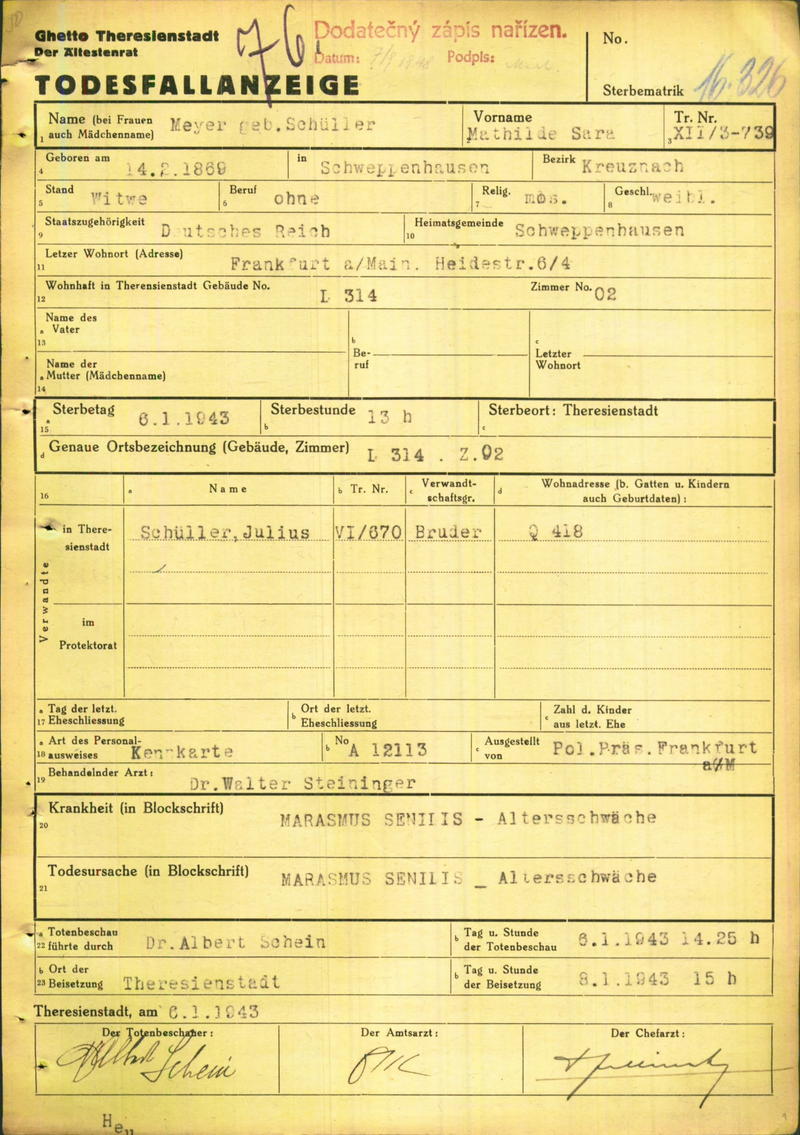 Ghetto Theresienstadt
Der Ältestenrat
Dodatečný zápis nařízen.
Datum: Podpis:
No.
TODESFALLANZEIGE
Sterbematrik 16.326
Name (bei Frauen auch Mädchenname) Meyer geb.Schüller
1
Vorname Mathilde Sara
Tr. Nr. 3 XII/3-739
Geboren am 14.2.1869 in Schweppenhausen Bezirk Kreuznach
4
Stand Witwe Beruf ohne Relig. mos. Geschl. weibl.
5 6 7 8
Staatszugehörigkeit Deutsches Reich Heimatsgemeinde Schweppenhausen
9 10
Letzer Wohnort (Adresse)
11 Frankfurt a/Main. Heidestr.6/4
Wohnhaft in Therensienstadt Gebäude No. L 314 Zimmer No. 02
12
Name des
a Vater
13
b Beruf
c Letzter Wohnort
Name der
a Mutter (Mädchenname)
14
Sterbetag 6.1.1943 Sterbestunde 13 h Sterbeort: Theresienstadt
a 15 b c
d Genaue Ortsbezeichnung (Gebäude, Zimmer) L 314 . Z.02
16 a Name b Tr. Nr. c Verwandtschaftsgr. d Wohnadresse (b. Gatten u. Kindern auch Geburtdaten):
Verwandte
in Theresienstadt Schüller,Julius VI/670 Bruder Q 418
im Protektorat
a Tag der letzt. b Ort der letzt. c Zahl d. Kinder
17 Eheschliessung Eheschliessung aus letzt. Ehe
a Art des Personal- b No A 12113 c Ausgestellt von Pol.Präs.Frankfurt
18 ausweises Kennkarte a/M
Behandelnder Arzt:
19 Dr.Walter Steininger
Krankheit (in Blockschrift) MARASMUS SENILIS - Altersschwäche
20
Todesursache (in Blockschrift) MARASMUS SENILIS _ Altersschwäche
21
a Totenbeschau b Tag u. Stunde
22 führte durch Dr.Albert Schein der Totenbeschau 6.1.1943 14.25 h
b Ort der b Tag u. Stunde
23 Beisetzung Theresienstadt der Beisetzung 8.1.1943 15 h
Theresienstadt, am 6.1.1943
Der Totenbeschauer: Der Amtsarzt: Der Chefarzt:
Albert Schein
He